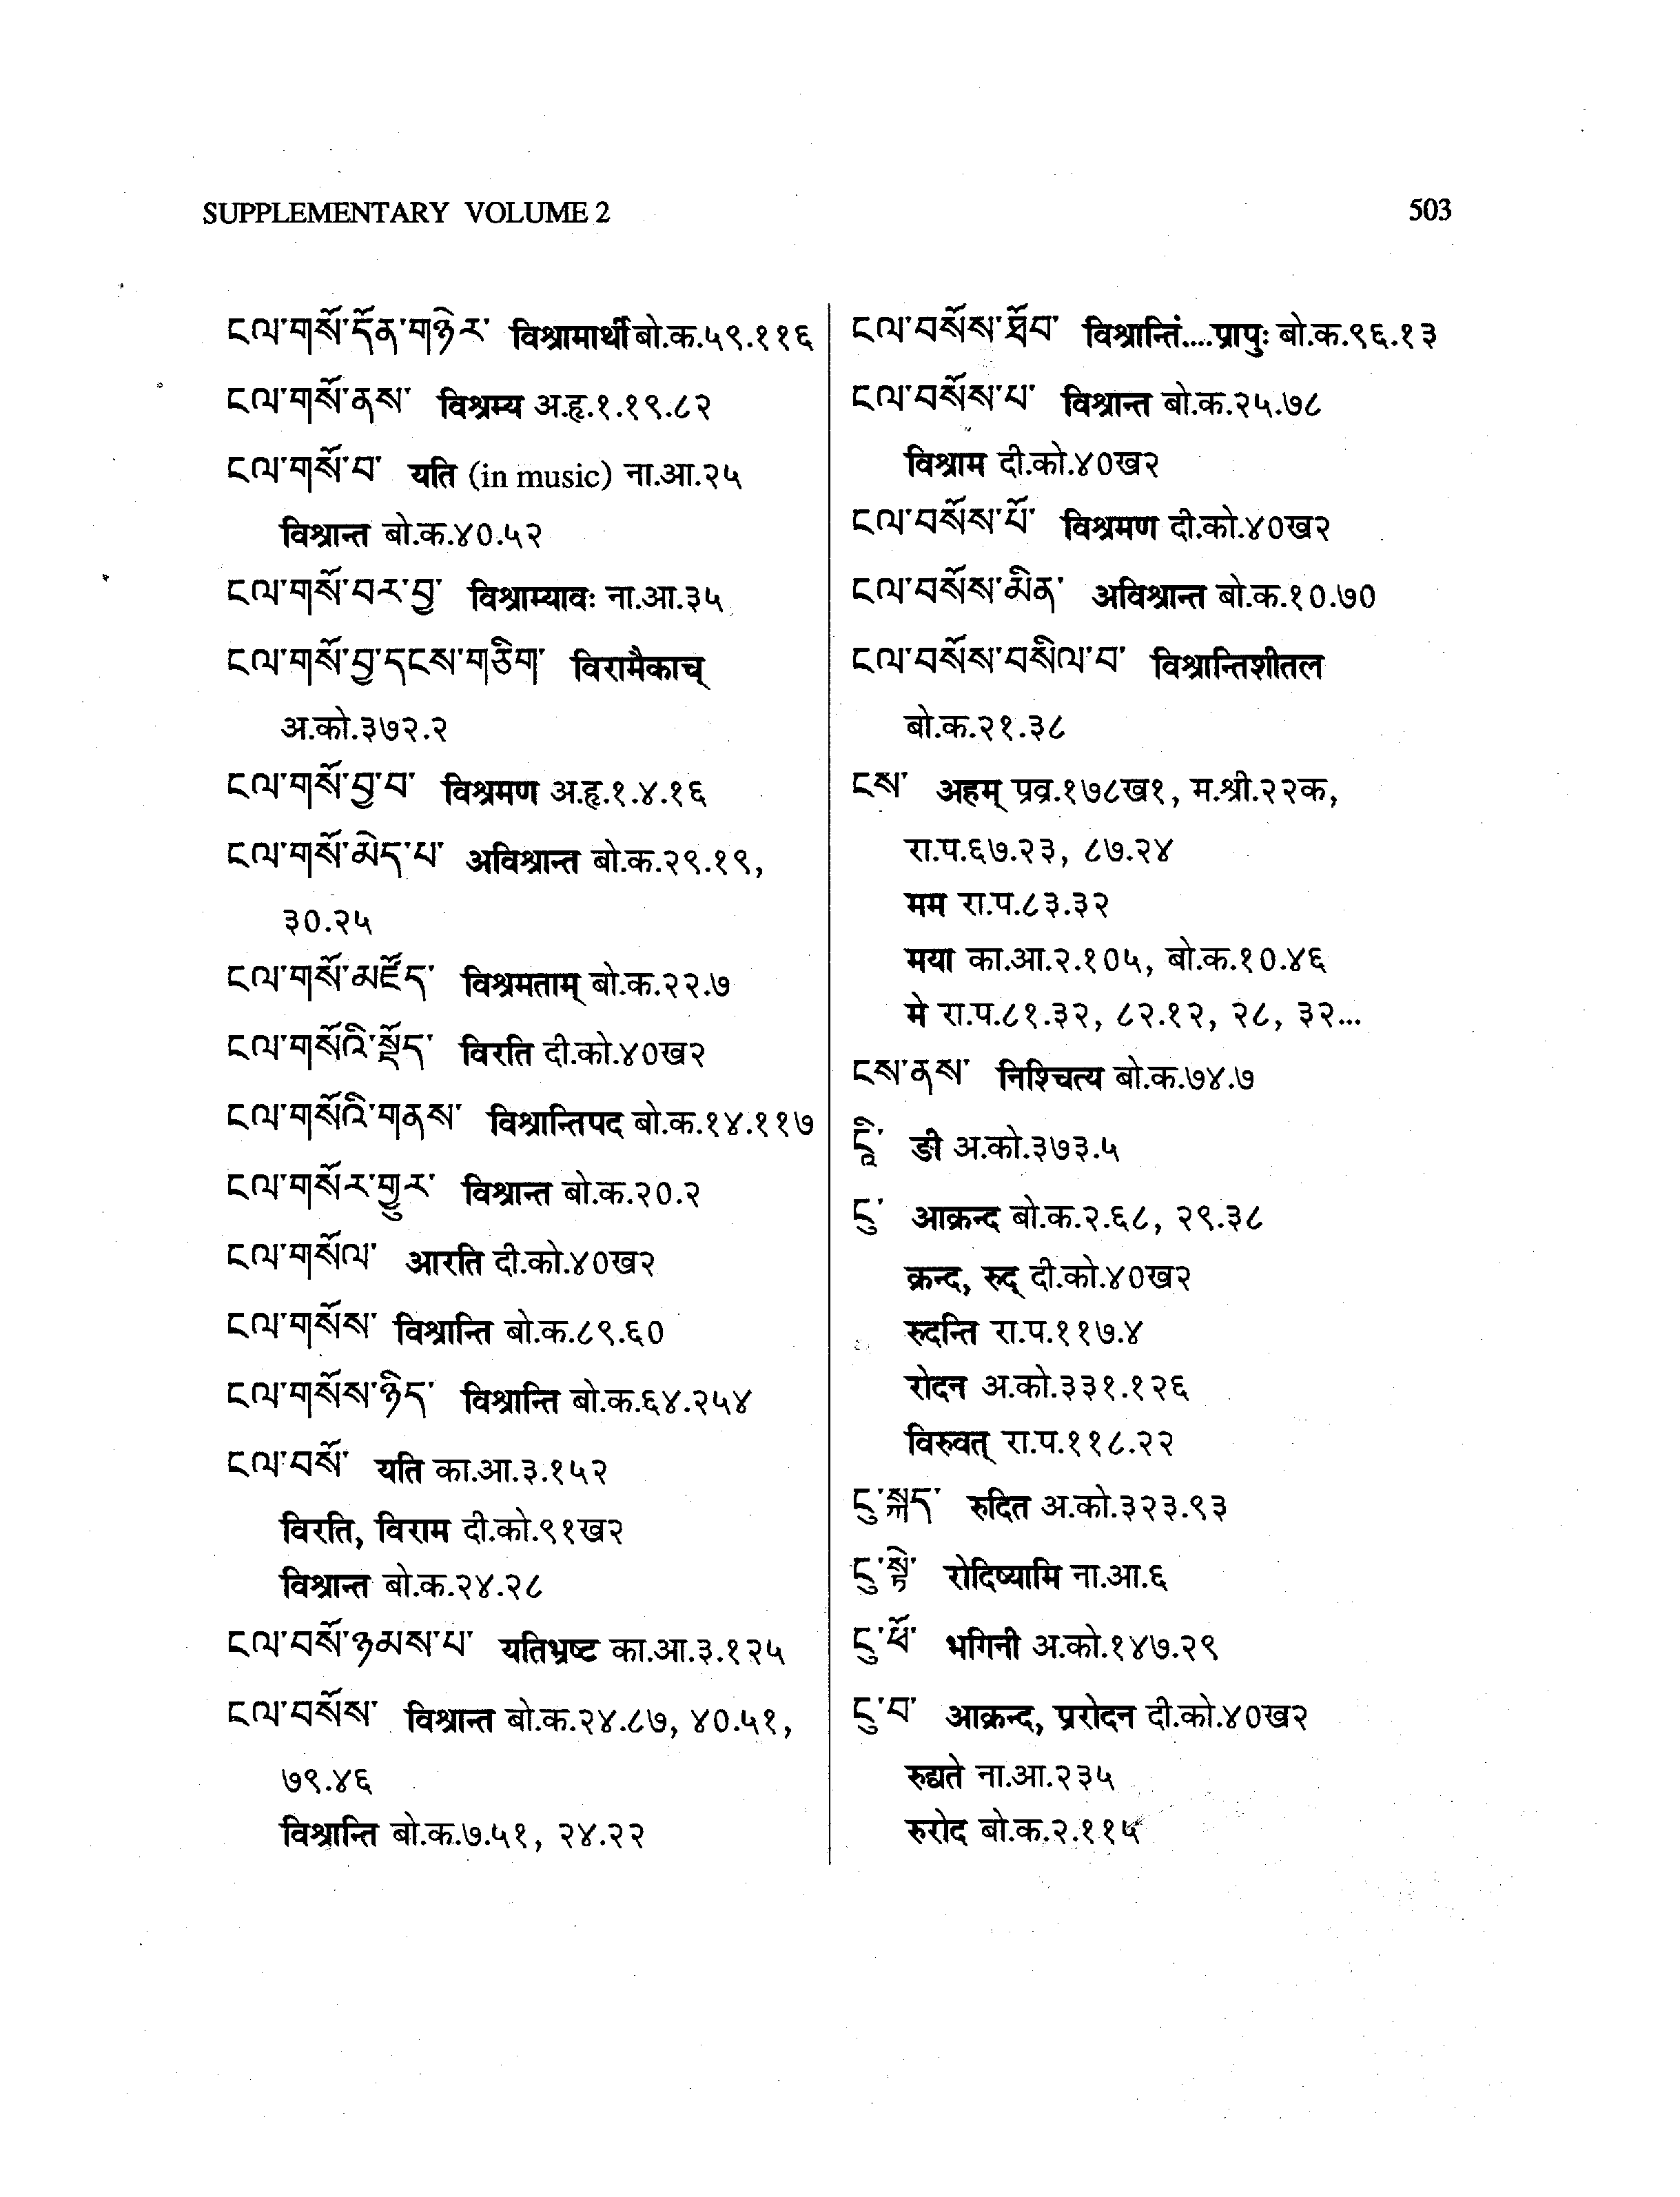 SUPPLEMENTARY VOLUME 2
503
ངལ་གསོ་དོན་གཉེར་ विश्रामार्थी बो.क.५९.११६
ངལ་གསོ་ནས་ विश्रम्य अ.हृ.१.१९.८२
ངལ་གསོ་བ་ यति (in music) ना.आ.२५
विश्रान्त बो.क.४०.५२
ངལ་གསོ་བར་བྱ་ विश्राम्यावः ना.आ.३५
ངལ་གསོ་བྱ་དངས་གཅིག་ विरामैकाच्
अ.को.३७२.२
ངལ་གསོ་བྱ་བ་ विश्रमण अ.हृ.१.४.१६
ངལ་གསོ་མེད་པ་ अविश्रान्त बो.क.२९.१९,
३०.२५
ངལ་གསོ་མཛོད་ विश्रमताम् बो.क.२२.७
ངལ་གསོའི་སྡོད་ विरति दी.को.४०ख२
ངལ་གསོའི་གནས་ विश्रान्तिपद बो.क.१४.११७
ངལ་གསོར་གྱུར་ विश्रान्त बो.क.२०.२
ངལ་གསོལ་ आरति दी.को.४०ख२
ངལ་གསོས་ विश्रान्ति बो.क.८९.६०
ངལ་གསོས་ཉིད་ विश्रान्ति बो.क.६४.२५४
ངལ་བསོ་ यति का.आ.३.१५२
विरति, विराम दी.को.९१ख२
विश्रान्त बो.क.२४.२८
ངལ་བསོ་ཉམས་པ་ यतिभ्रष्ट का.आ.३.१२५
ངལ་བསོས་ विश्रान्त बो.क.२४.८७, ४०.५१,
७९.४६
विश्रान्ति बो.क.७.५१, २४.२२
ངལ་བསོས་ཐོབ་ विश्रान्तिं....प्रापुः बो.क.९६.१३
ངལ་བསོས་པ་ विश्रान्त बो.क.२५.७८
विश्राम दी.को.४०ख२
ངལ་བསོས་པོ་ विश्रमण दी.को.४०ख२
ངལ་བསོས་མིན་ अविश्रान्त बो.क.१०.७०
ངལ་བསོས་བསིལ་བ་ विश्रान्तिशीतल
बो.क.२१.३८
ངས་ अहम् प्रव्र.१७८ख१, म.श्री.२२क,
रा.प.६७.२३, ८७.२४
मम रा.प.८३.३२
मया का.आ.२.१०५, बो.क.१०.४६
मे रा.प.८१.३२, ८२.१२, २८, ३२...
ངས་ནས་ निश्चित्य बो.क.७४.७
ངཱི་ ङी अ.को.३७३.५
ངུ་ आक्रन्द बो.क.२.६८, २९.३८
क्रन्द, रुद् दी.को.४०ख२
रुदन्ति रा.प.११७.४
रोदन अ.को.३३१.१२६
विरुवत् रा.प.११८.२२
ངུ་སྐད་ रुदित अ.को.३२३.९३
ངུ་སྟེ་ रोदिष्यामि ना.आ.६
ངུ་ཕོ་ भगिनी अ.को.१४७.२९
ངུ་བ་ आक्रन्द, प्ररोदन दी.को.४०ख२
रुद्यते ना.आ.२३५
रुरोद बो.क.२.११५